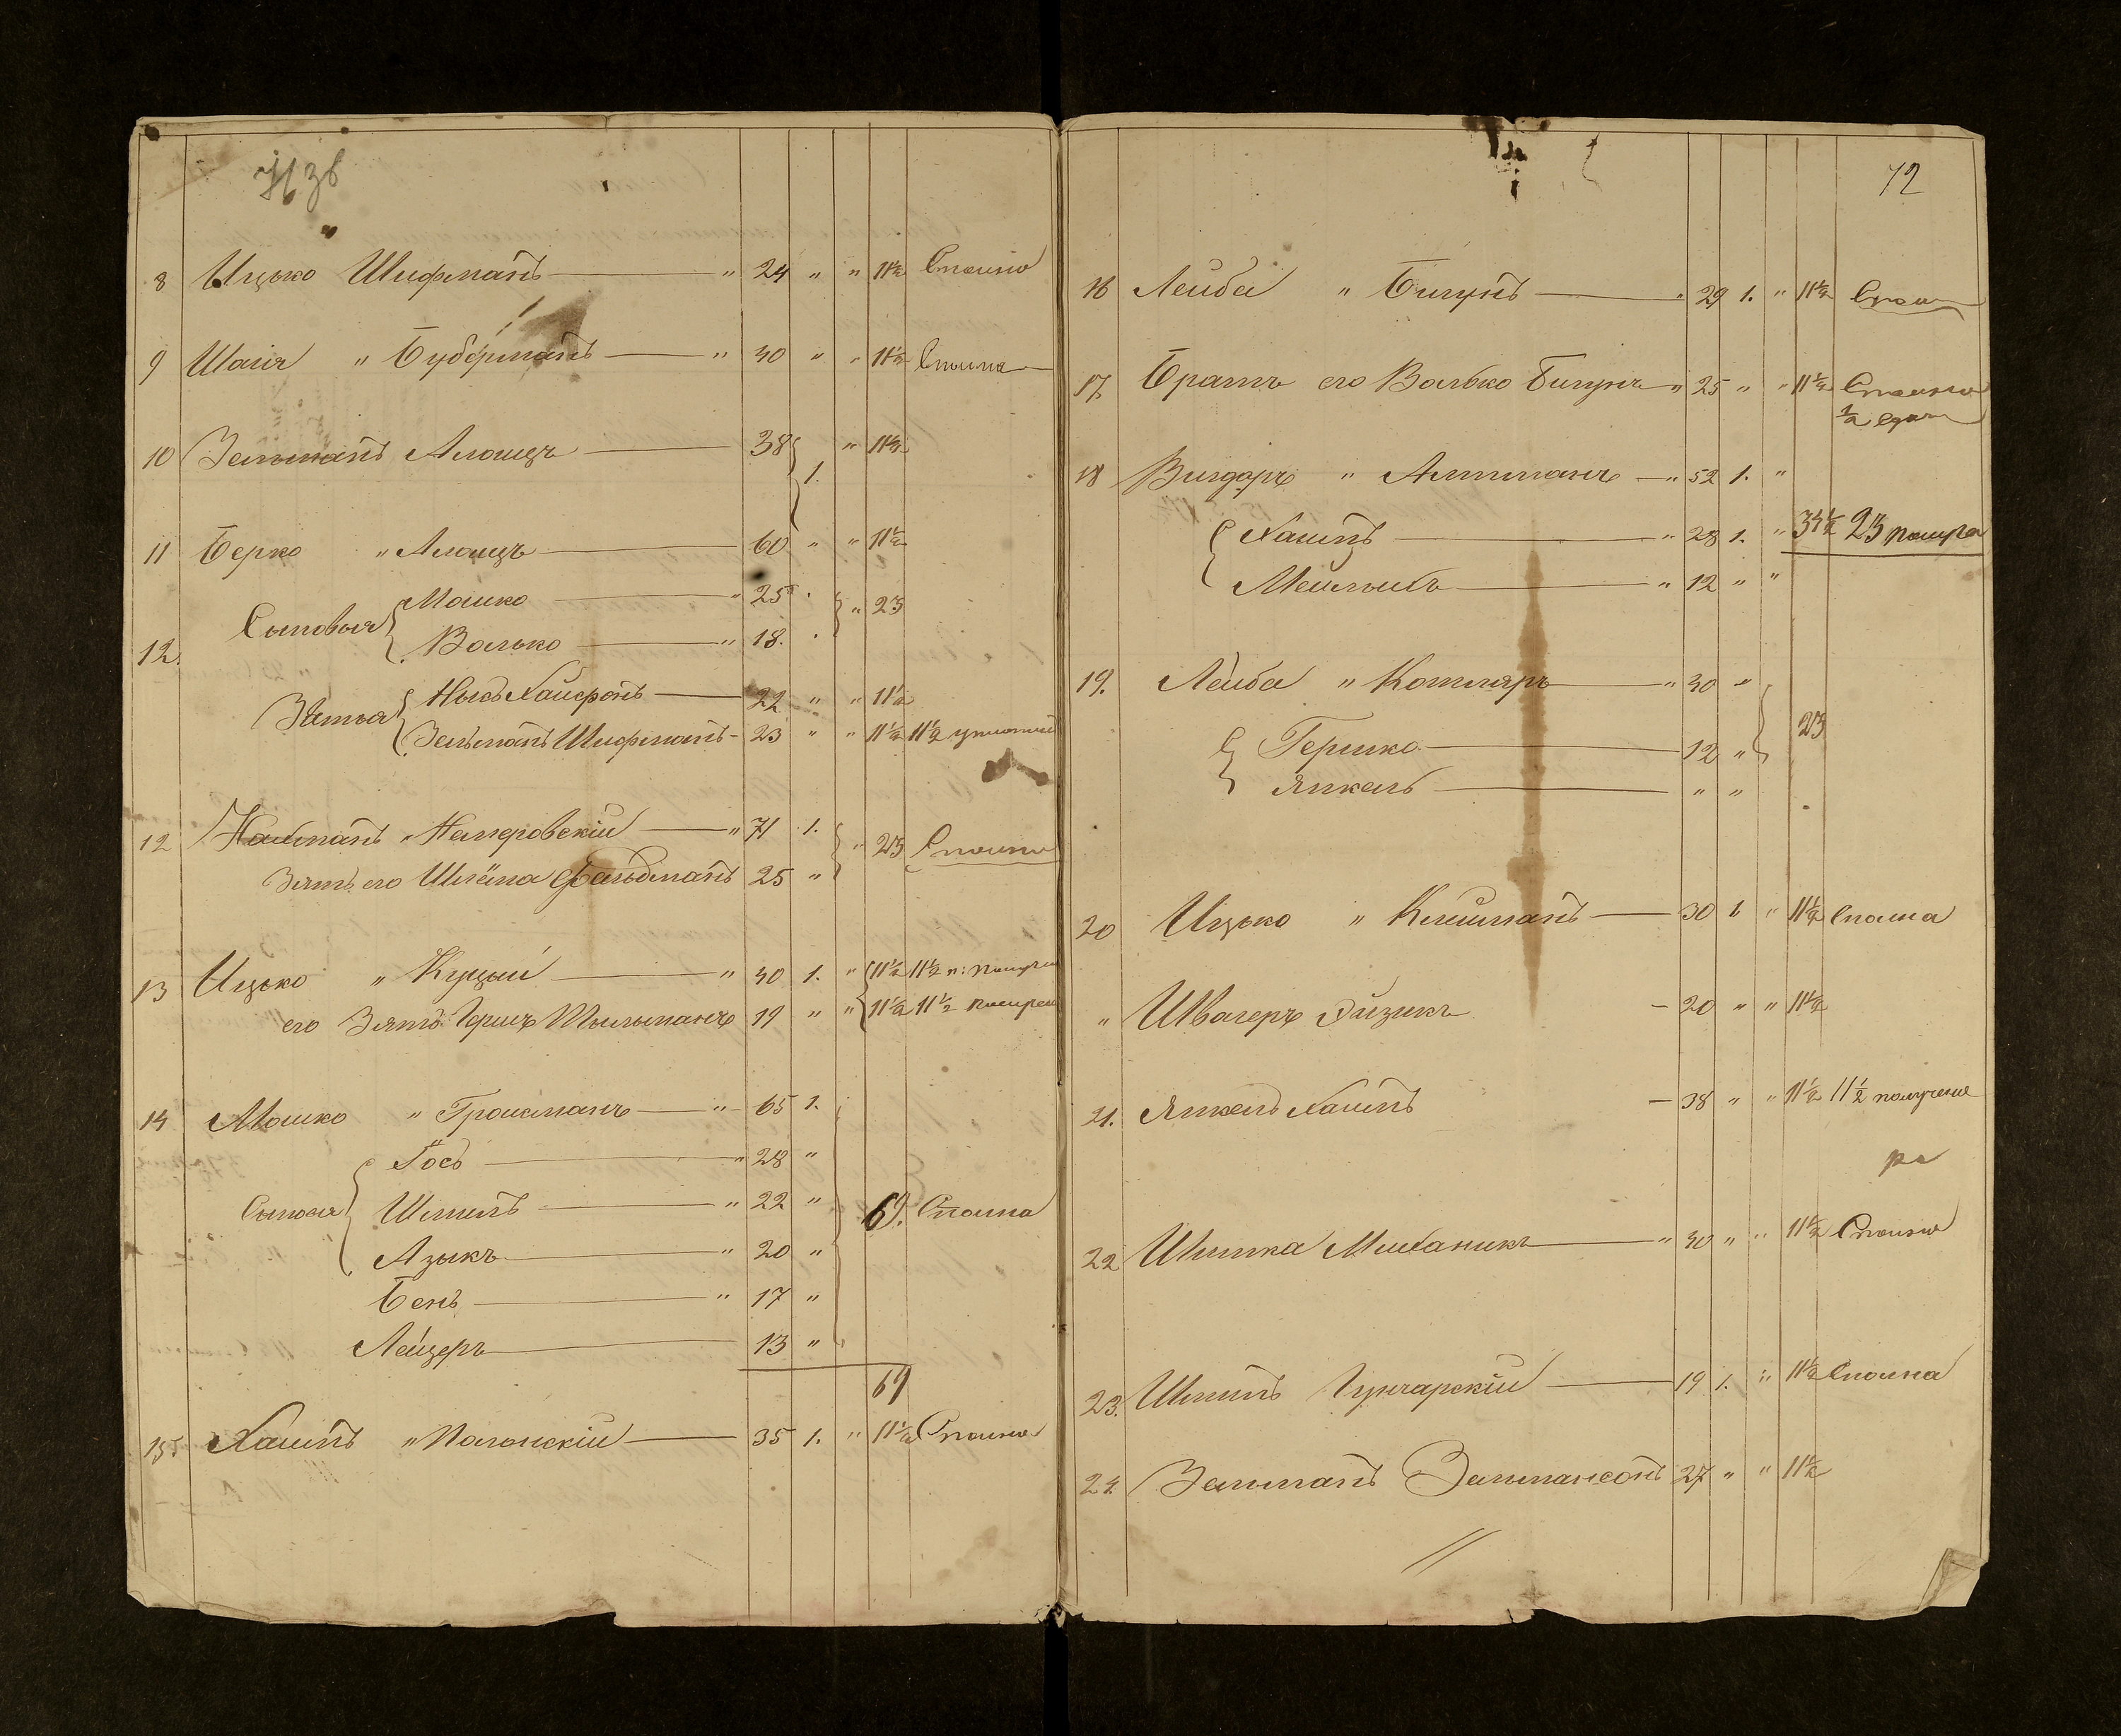 71 зв
8 Ицько Шифманъ " 24 " " 11½ Сполно
9 Шаія " Губерманъ " 40 " " 11½ Сполна
10 Зельманъ 38 1. " 11½
11 Берко " 60 " " 11½
Сыновья Мошко " 25 " 23
12. Волько " 18.
Зятья Хаифонъ 22 " " 11½
Зельманъ Шифманъ 23 " " 11½ 11½
12 Нахманъ " Немеровскій " 71 1. " 23 Сполно
Зять его Шлёма Фельдманъ 25 "
13 Ицько " Куцый " 40 1. " 11½ 11½ п:
его Зять Гершъ 19 " " 11½ 11½
14 Мошко " Гроисманъ " 65 1.
Іось " 28 "
Сыновья Шмиль " 22 " 69. Сполна
Азыкъ " 20 "
Бень " 17 "
Лейзеръ 13 "
69
15 Хаимъ " Полонскій 35 1. " 11½ Сполна
72
16 Лейба " Бигунъ " 29 1. " 11½
17, Братъ его Волько Бигунъ " 25 " " 11½ Сполно
½
18 Вигдоръ " Алтманъ " 52 1. "
Хаимъ " 28 1. " 34½ 23
" 12 " "
19. Лейба " Котляръ " 40 " 23
Гершко 12 "
Янкель " "
20 Ицько " Клейманъ 30 1 " 11½ Сполна
" Швагеръ Эйзикъ 20 " " 11½
21. Янкель Хаимъ 38 " " 11½ 11½ получено
ра
22 Шимка Миханикъ " 40 " " 11½ Сполно
23. Шмиль Гунчарскій 19 1. " 11½ Сполна
24. Зельманъ Зельмансонъ 27 " " 11½